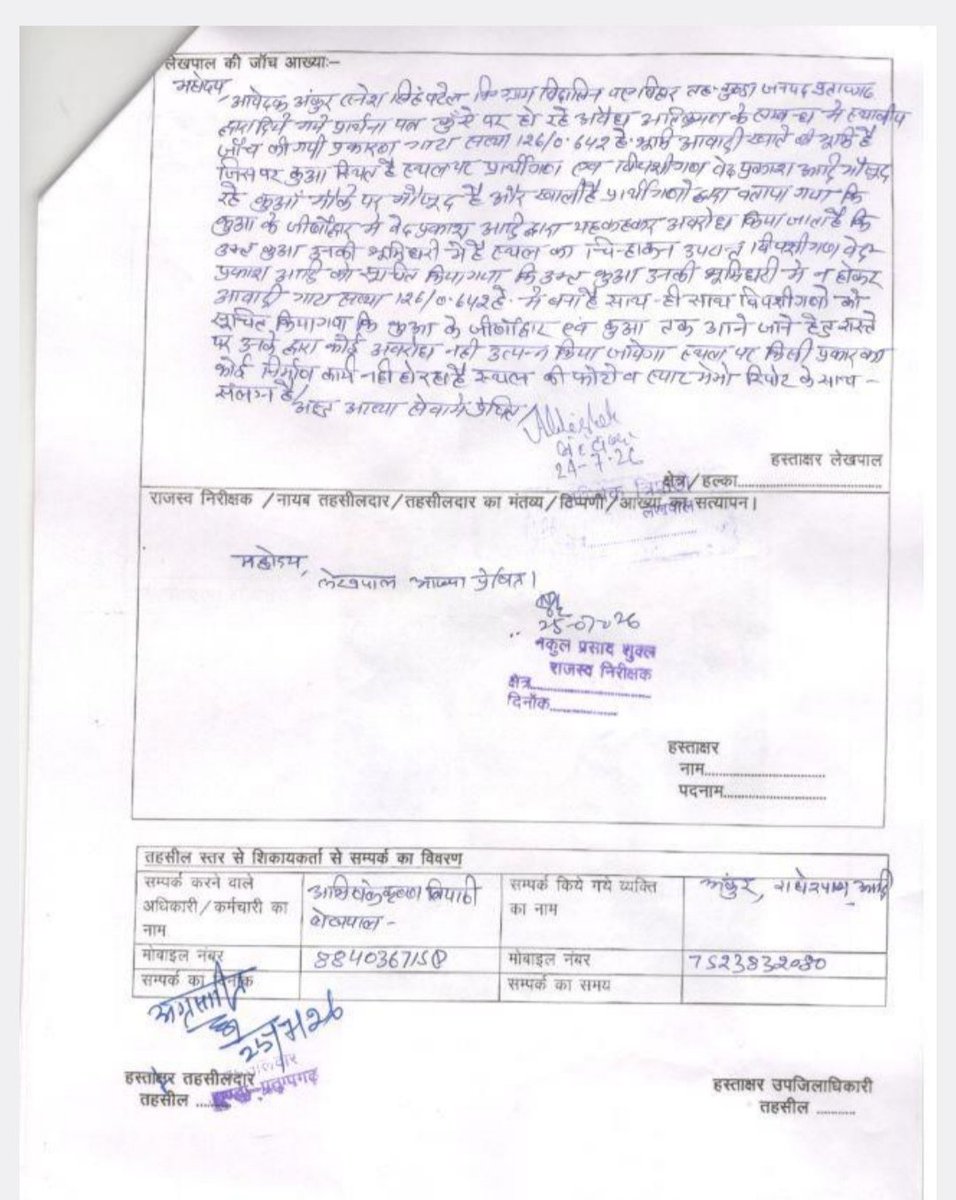 लेखपाल की जाँच आख्या:–
महोदय,
आवेदक अंकुर रत्नेश सिंह पटेल नि० ग्राम विदासिन पर० विहार तह० कुण्डा जनपद प्रतापगढ़
द्वारा दिये गये प्रार्थना पत्र कुँऐ पर हो रहे अवैध अतिक्रमण के सम्बन्ध मे स्थलीय
जाँच की गयी प्रकरण गाटा संख्या 126/0.642 हे. भूमि आवादी खाते की भूमि है
जिस पर कुआ स्थित है स्थल पर प्रार्थीगण एवं विपक्षीगण वेद प्रकाश आदि मौजूद
रहे कुआँ मौके पर मौजूद है और खाली है प्रार्थीगणो द्वारा बताया गया कि
कुआ के जीर्णोद्वार मे वेद प्रकाश आदि द्वारा यह कहकर अवरोध किया जाता है कि
उक्त कुआ उनकी भूमिधरी मे है स्थल का चिन्हाकन उपरान्त विपक्षीगण वेद-
प्रकाश आदि को सूचित किया गया कि उक्त कुआ उनकी भूमिधरी मे न होकर
आवादी गाटा संख्या 126/0.642 हे. मे बना है साथ-ही साथ विपक्षीगणो को
सूचित किया गया कि कुआ के जीर्णोद्वार एवं कुआ तक आने जाने हेतु रास्ते
पर उनके द्वारा कोई अवरोध नही उत्पन्न किया जायेगा स्थल पर किसी प्रकार का
कोई निर्माण कार्य नही हो रहा है स्थल की फोटो व स्पाट मेमो रिपोट के साथ-
संलग्न है।
अतः आख्या सेवामे प्रेषित
Abhishek
24-7-26
हस्ताक्षर लेखपाल
क्षेत्र/हल्का....................
लेखपाल
राजस्व निरीक्षक /नायब तहसीलदार/तहसीलदार का मंतव्य/टिप्पणी/आख्या का सत्यापन।
महोदय,
लेखपाल आख्या प्रेषित।
25-07-26
नकुल प्रसाद शुक्ल
राजस्व निरीक्षक
क्षेत्र....................
दिनाँक....................
हस्ताक्षर
नाम....................
पदनाम....................
तहसील स्तर से शिकायकर्ता से सम्पर्क का विवरण
सम्पर्क करने वाले अधिकारी/कर्मचारी का नाम
अभिषेक कृष्ण त्रिपाठी लेखपाल -
सम्पर्क किये गये व्यक्ति का नाम
अंकुर, आदि
मोबाइल नंबर
मोबाइल नंबर
7523832080
सम्पर्क का दिनांक
सम्पर्क का समय
अग्रसारित
25/7/26
हस्ताक्षर तहसीलदार
तहसील ..........
कुण्डा-प्रतापगढ़
हस्ताक्षर उपजिलाधिकारी
तहसील ..........